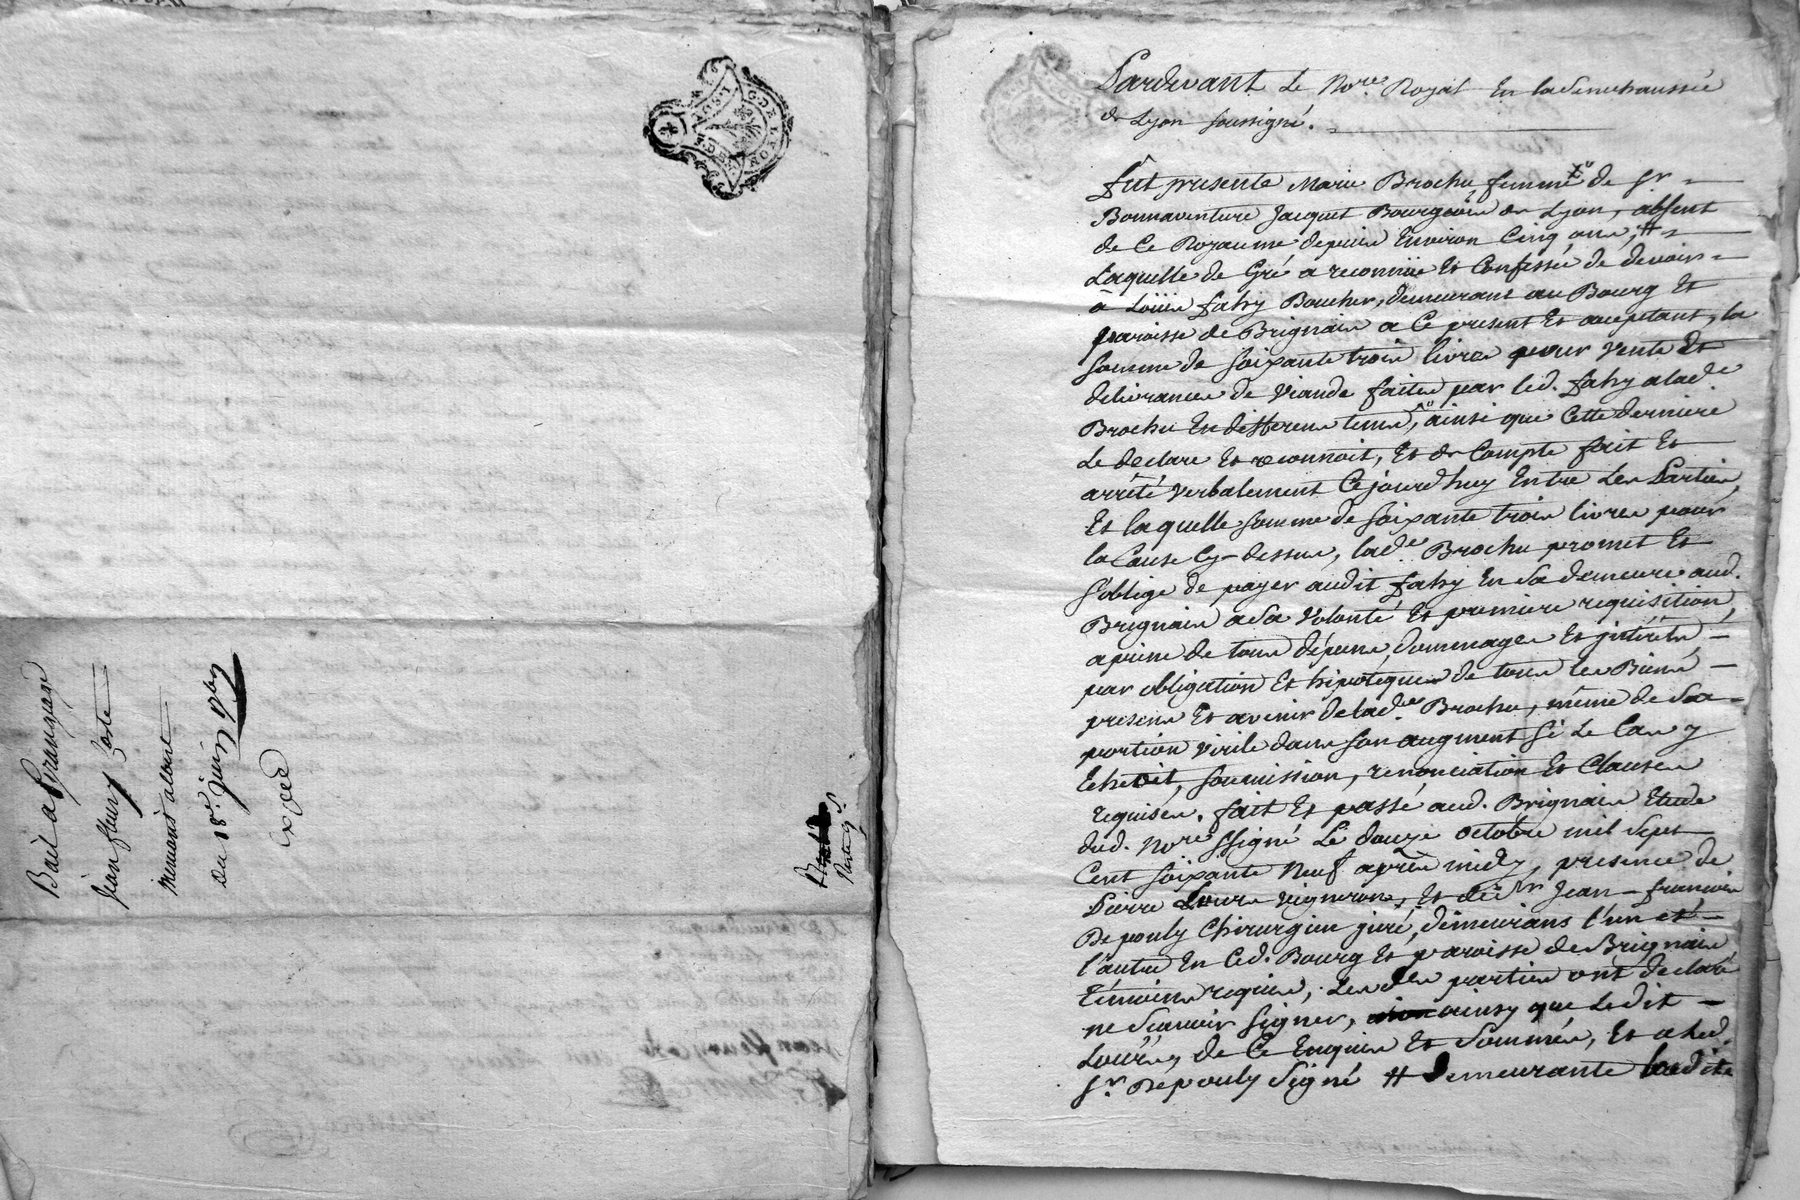 Bail a Grangeage
Jean fleury Coste
Mermont about
du 18e. juin 1769
Exped
G. DE LYON
Pardevant Le Nore. Royal En la Senechaussée
de Lyon soussigné.
fut presente Marie Brochu femme de Sr
Bonnaventure Jacquet Bourgeois de Lyon, absent
de Ce Royaume depuis Environ Cinq ans, #
Laquelle de Gré a reconnue Et Confessée de devoir
à Loüis fahy Boucher, demeurant au Bourg Et
paroisse de Brignais a Ce present Et aceptant, la
somme de soixante trois livres pour Vente Et
delivrances de Viande faites par led. fahy a lade.
Brochu En differens tems, ainsi que Cette derniere
Le declare Et reconnoit, Et de Compte fait Et
arrêté Verbalement Cejourd'huy Entre Les Parties,
Et laquelle somme de soixante trois livres pour
la Cause Cy-dessus, lade. Brochu promet Et
s'oblige de payer audit fahy En Sa demeure aud.
Brignais a Sa Volonté Et premiere requisition,
a peine de tous dépens, dommages Et jntérêts,
par obligation Et hipoteques de tous les Biens
presens Et avenir de lade. Brochu, même de Sa
portion Virile dans son augment Si Le Cas y
Echeoit, soumission, renonciation Et Clauses
requises. fait Et passé aud. Brignais Etude
dud. Nore. ssigné Le douze octobre mil Sept
Cent soixante Neuf après midy, presence de
Pierre Loüras Vigneron, Et de Sr Jean-françois
Depouly Chirurgien juré, demeurans l'un et
l'autre En Ced. Bourg Et paroisse de Brignais
témoins requis, Les des. parties ont déclaré
ne Sçavoir Signer, ainsy que Ledit
Loüras, de Ce Enquis Et Sommés, Et a led.
Sr. Depouly Signé # Demeurante ladite